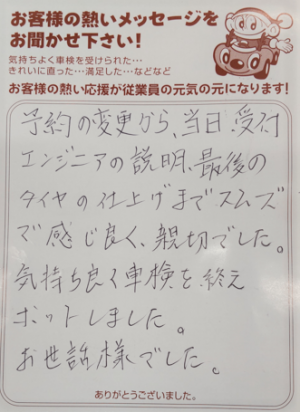 お客様の熱いメッセージを
お聞かせ下さい!
気持ちよく車検を受けられた…
きれいに直った…満足した…などなど
お客様の熱い応援が従業員の元気の元になります!
予約の変更から、当日、受付
エンジニアの説明、最後の
タイヤの仕上げまでスムーズ
で感じ良く、親切でした。
気持ち良く車検を終え
ホットしました。
お世話様でした。
ありがとうございました。